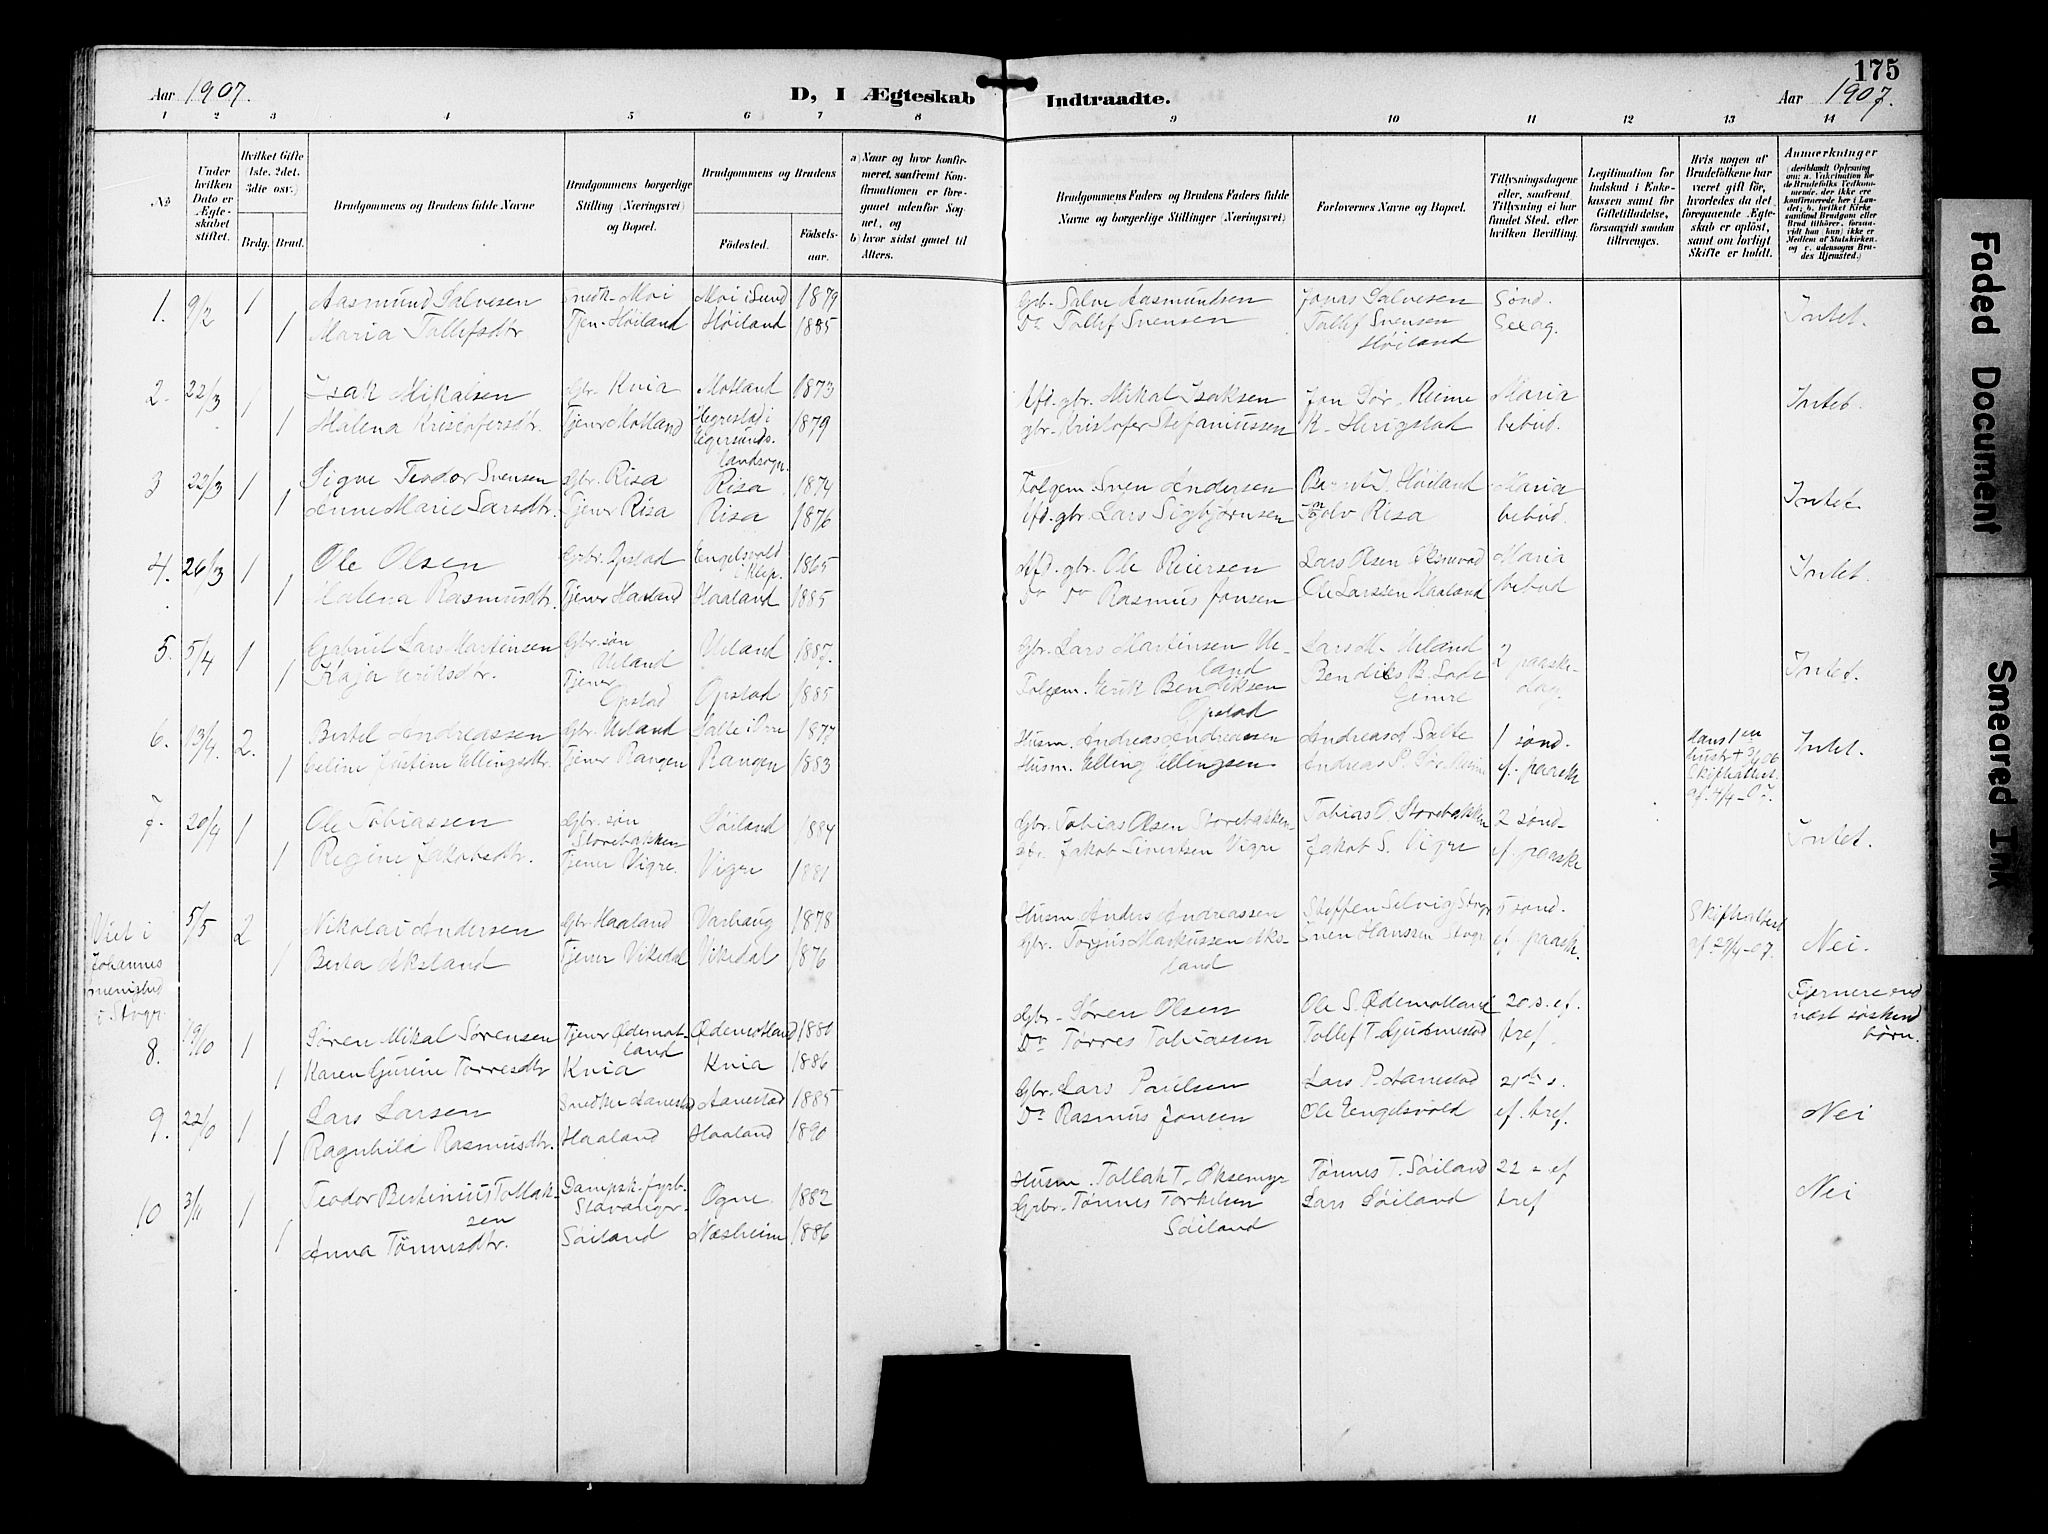 175
Aar 1907.
D, I Ægteskab Indtraadte.
Aar 1907.
1 2 3 4 5 6 7 8 9 10 11 12 13 14
No
Under hvilken Dato er Ægteskabet stiftet.
Hvilket Gifte (1ste, 2det, 3die osv.)
Brdg. Brud.
Brudgommens og Brudens fulde Navne
Brudgommens borgerlige Stilling (Næringsvei) og Bopæl.
Brudgommens og Brudens
Fødested. Fødselsaar.
a) Naar og hvor konfirmeret, saafremt Konfirmationen er foregaaet udenfor Sognet, og
b) hvor sidst gaaet til Alters.
Brudgommens Faders og Brudens Faders fulde Navne og borgerlige Stillinger (Næringsvei)
Forlovernes Navne og Bopæl.
Tillysningsdagene eller, saafremt Tillysning ei har fundet Sted, efter hvilken Bevilling.
Legitimation for Indskud i Enkekassen samt for Giftetilladelse, forsaavidt saadan tiltrænges.
Hvis nogen af Brudefolkene har været gift før, hvorledes da det foregaaende Ægteskab er opløst, samt om lovligt Skifte er holdt.
Anmerkninger
1. 9/2 1 Aasmund Salvesen Snedk. Moi Moi i Lund 1879 Gb. Salve Aasmundsen Jonas Salvesen Sønd.
1 Maria Tollefsdtr Tjen. Høiland Høiland 1885 Do Tollef Svensen Tollef Svensen Sexag. Intet.
Høiland
2. 22/3 1 Isak Mikalsen Gbr. Kvia Motland 1873 Afd. gbr. Mikal Isaksen Jon Sør-Reime Maria Intet.
1 Malena Kristofersdtr. Tjener Motland Hegrestad i Egersunds landsogn. 1879 gbr. Kristofer Stefaniussen K. Herigstad bebud.
3 22/3 1 Sigve Teodor Svensen Gbr. Risa Risa 1874 Folgem. Sven Andersen Høiland Maria
1 Anne Marie Larsdtr. Tjener Risa Risa 1876 Afd. gbr. Lars Sigbjørnsen Risa bebud. Intet
4. 26/3 1 Ole Olsen Gbr. Opstad Engelsvold i Klep. 1865 Afd. gbr. Ole Reiersen Lars Olsen Maria Intet.
1 Malena Rasmusdtr. Tjener Haaland Haaland 1885 Do Do Rasmus Jonsen Ole Larssen Haaland bebud
5. 5/4 1 Gabriel Lars Martinsen Gbr. søn Ueland Ueland 1887. Gbr. Lars Martinsen Ueland Lars M. Ueland 2 paaskedag. Intet.
1 Kaja Eriksdtr. Tjener Opstad Opstad 1885 Folgem. Erik Bendiksen Opstad Bendiks B. Lode
6. 13/4. 2. Bertel Andreassen Gbr. Ueland Salte i Orre 1877 Husm. Andreas Andreassen Andreas Salte 1 sønd. Hans 1en hustr. Intet.
1 Celine Justine Ellingsdtr. Tjener Rangen Rangen 1883 Husm. Elling Ellingsen Andreas P. Sør-Reime ef. paaske Skifteattest af 4/4-07.
7. 20/4 1 Ole Tobiassen Gbr. søn Storebakken Søiland 1884 Gbr. Tobias Olsen Storebakken Tobias O. Storebakken 2 sønd. Intet.
1 Regine Jakobsdtr. Tjener Vigre. Vigre 1881 Gbr. Jakob Sivertsen Vigre Jakob S. Vigre ef. paaske
Viet i Johannes menighed i Stvgr. 5/5 2 Nikolai Andersen Gbr. Haaland Varhaug 1878 Husm Anders Andreassen Steffen Selvig Stvgr 5 sønd. Skifteattest af 29/4-07. Nei.
1 Berta Aksland Tjener Vikedal Vikedal 1876 Gbr. Torjus Markussen Aksland Sven Hanssen Stvgr ef. paaske.
8. 19/10 1 Søren Mikal Sørensen Tjener Ødemotland Ødemotland 1881 Gbr. Søren Olsen Ole S. Ødemotland 20. s. ef. Fjernere end næst søskendbørn.
1 Karen Gurine Torresdtr Kvia Kvia 1886 Do Tørres Tobiassen Tollef T. Gudmestad tref.
9. 22/10 1 Lars Larsen Snedker Aanestad Aanestad 1885 Gbr. Lars Paulsen Lars P. Aanestad 21de s. Nei
1 Ragnhild Rasmusdtr. Haaland Haaland 1890 Do Rasmus Jonsen Ole Engelsvold ef. tref.
10 3/11 1 Teodor Bertinius Tollaksen Dampsk. fyrb. Stavanger. Ogne. 1882 Husm. Tollak T. Oksemyr Tønnes T. Søiland 22 - ef Nei
1 Anna Tønnesdtr. Søiland Næsheim 1886 Gbr. Tønnes Torkelsen Søiland Lars Søiland tref
Faded Document
Smeared Ink